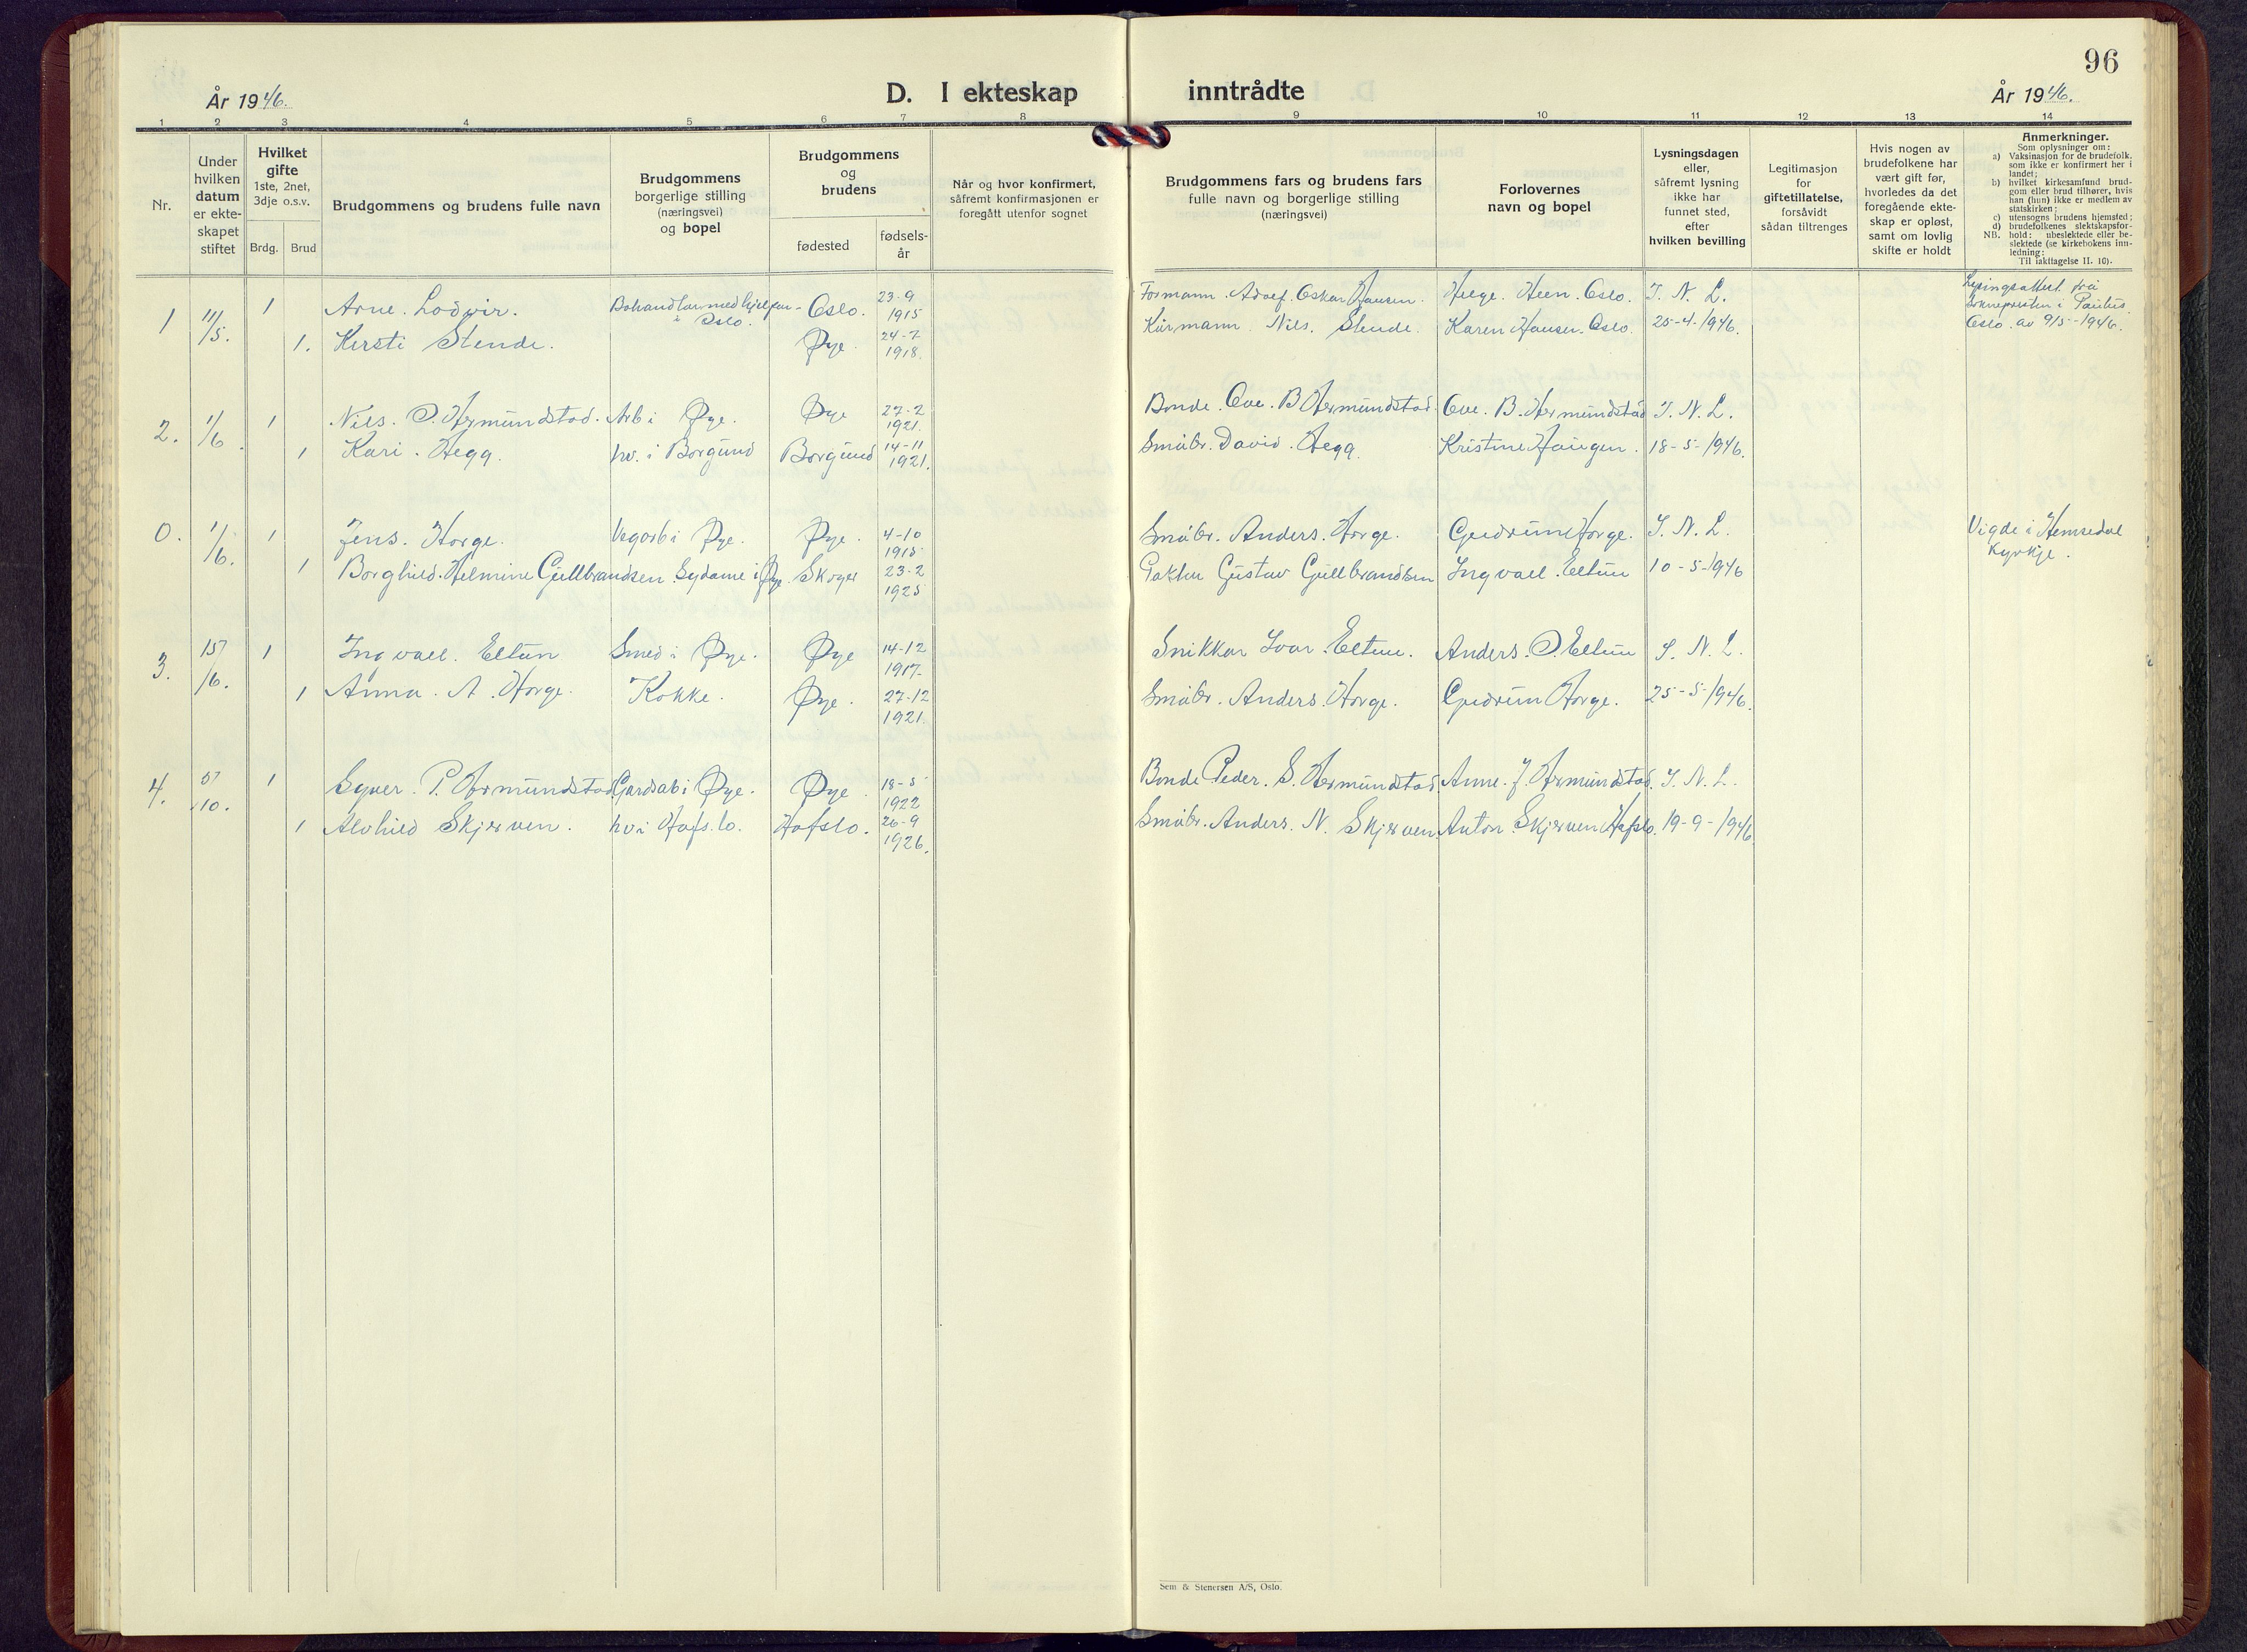 96
År 1946.
D. I ekteskap inntrådte
År 1946.
1 2 3 4 5 6 7 8 9 10 11 12 13 14
Nr.
Under
hvilken
datum
er ekte-
skapet
stiftet
Hvilket
gifte
1ste, 2net,
3dje o.s.v.
Brdg. Brud
Brudgommens og brudens fulle navn
Brudgommens
borgerlige stilling
(næringsvei)
og bopel
Brudgommens
og
brudens
fødested
fødsels-
år
Når og hvor konfirmert,
såfremt konfirmasjonen er
foregått utenfor sognet
Brudgommens fars og brudens fars
fulle navn og borgerlige stilling
(næringsvei)
Forlovernes
navn og bopel
Lysningsdagen
eller,
såfremt lysning
ikke har
funnet sted,
efter
hvilken bevilling
Legitimasjon
for
giftetillatelse,
forsåvidt
sådan tiltrenges
Hvis nogen av
brudefolkene har
vært gift før,
hvorledes da det
foregående ekte-
skap er opløst,
samt om lovlig
skifte er holdt
Anmerkninger.
Som oplysninger om:
a) Vaksinasjon for de brudefolk.
som ikke er konfirmert her i
landet;
b) hvilket kirkesamfund brud-
gom eller brud tilhører, hvis
han (hun) ikke er medlem av
statskirken;
c) utensogns brudens hjemsted;
d) brudefolkenes slektskapsfor-
NB. hold: ubeslektede eller be-
slektede (se kirkebokens inn-
ledning:
Til iakttagelse II. 10).
1 11/5. 1 Arne. Lodvir. Bohandlarmedhjelpar- i Oslo. Oslo. 23-9 1915 Formann. Adolf. Oskar Hansen. Helge. Heen. Oslo. T. N. L. Lysingsattest frå
soknepresten i Paulus
Oslo. av 9/5-1946.
1. Kersti Stende. Øye. 24-7 1918. Kürmann. Nils. Stende. Karen Hansen. Oslo. 25-4-1946.
2. 1/6. 1 Nils. O. Hermundstad. Arb i Øye. Øye 27-2 1921. Bonde. Ove. B Hermundstad. Ove. B. Hermundstad T. N. L.
1 Kari. Hegg. hv. i Borgund Borgund 14-11 1921. Småbr. David. Hegg. Kristine Haugen. 18-5-1946.
0. 1/6. 1 Jens. Horge. Vegarb i Øye. Øye. 4-10 1915 Småbr. Anders. Horge. Gudrun Horge. T. N. L. Vigde i Hemsedal
kyrkje.
1 Borghild. Helmine Gullbrandsen Sydame i Øye. Skoger 23-2 1925 Gustav Gullbrandsen Ingvall. Eltun 10-5-1946
3. 15/6. 1 Ingvall. Eltun Smed i Øye. Øye 14-12 1917. Snikkar Ivar. Eltun. Anders. O. Eltun T. N. L.
1 Anna. A. Horge. Kokke. Øye. 27-12 1921. Småbr. Anders. Horge. Gudrun Horge. 25-5-1946.
4. 5/10. 1 Syver. P. Hermundstad Gardsab i Øye. Øye. 18-5 1922 Bonde Peder. S. Hermundstad Anne. J. Hermundstad. T. N. L.
1 Alvhild Skjerven. hv i Hafslo. Hafslo. 26-9 1926. Småbr. Anders. N. Skjerven. Anton Skjerven Hafslo. 19-9-1946
Sem & Stenersen A/S, Oslo.